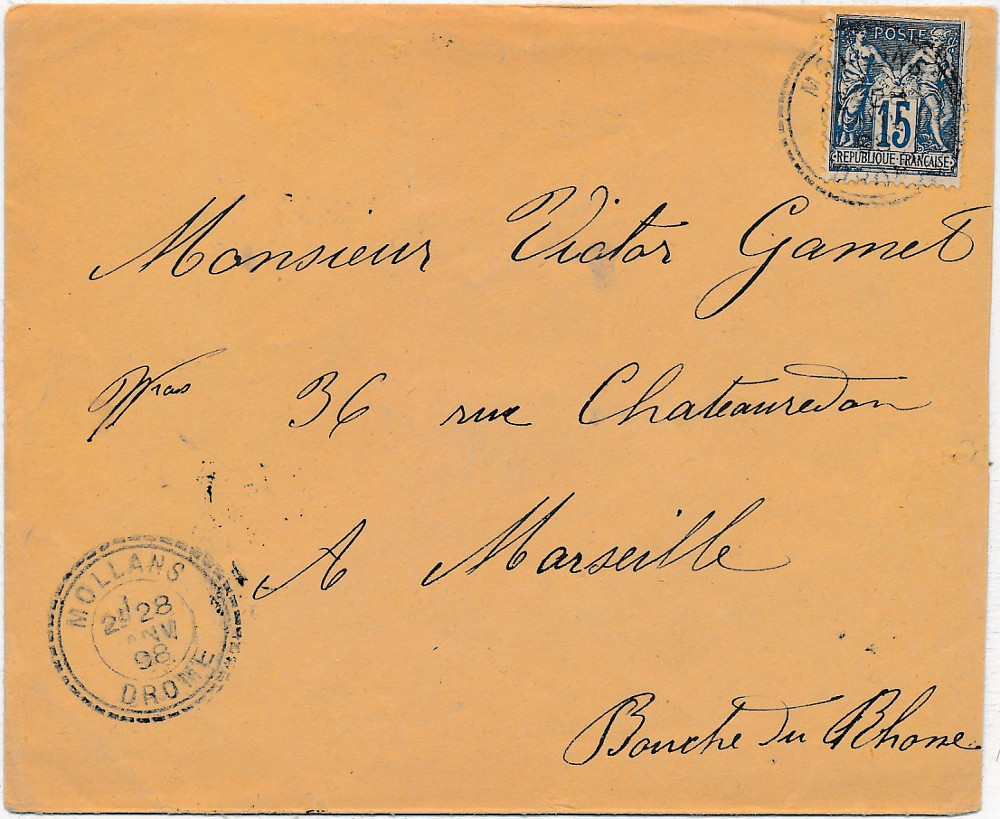 POSTE
15
REPUBLIQUE FRANÇAISE
Monsieur Victor Gamet
36 rue Chateauredon
A Marseille
MOLLANS
28
JANV
98
DROME
Bouche du Rhone